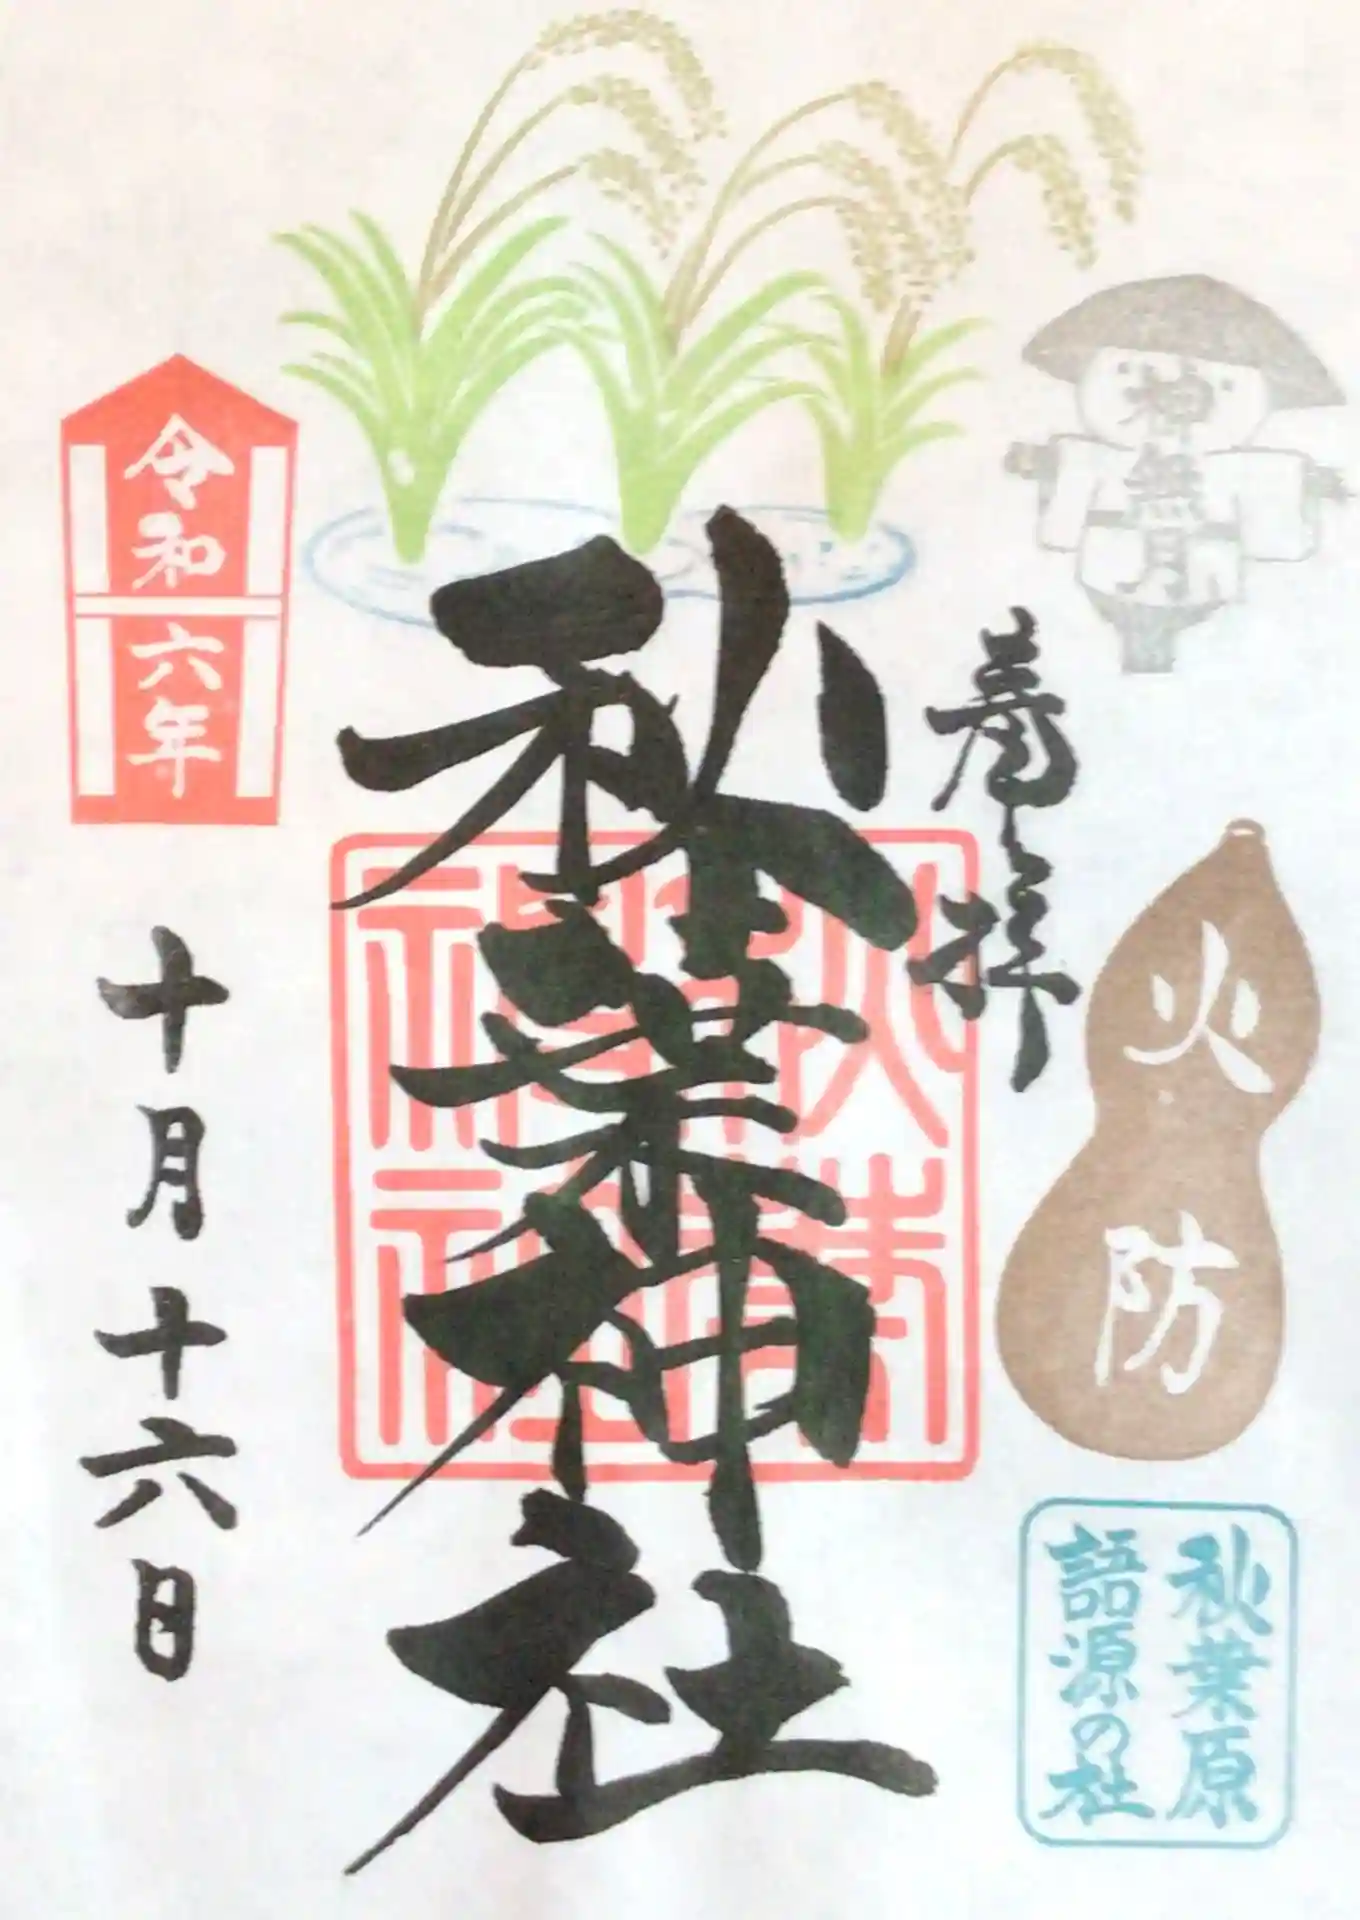 神無月
奉拝
火防
秋葉原
語源の社
秋葉神社
秋葉
神社
令和六年
十月十六日